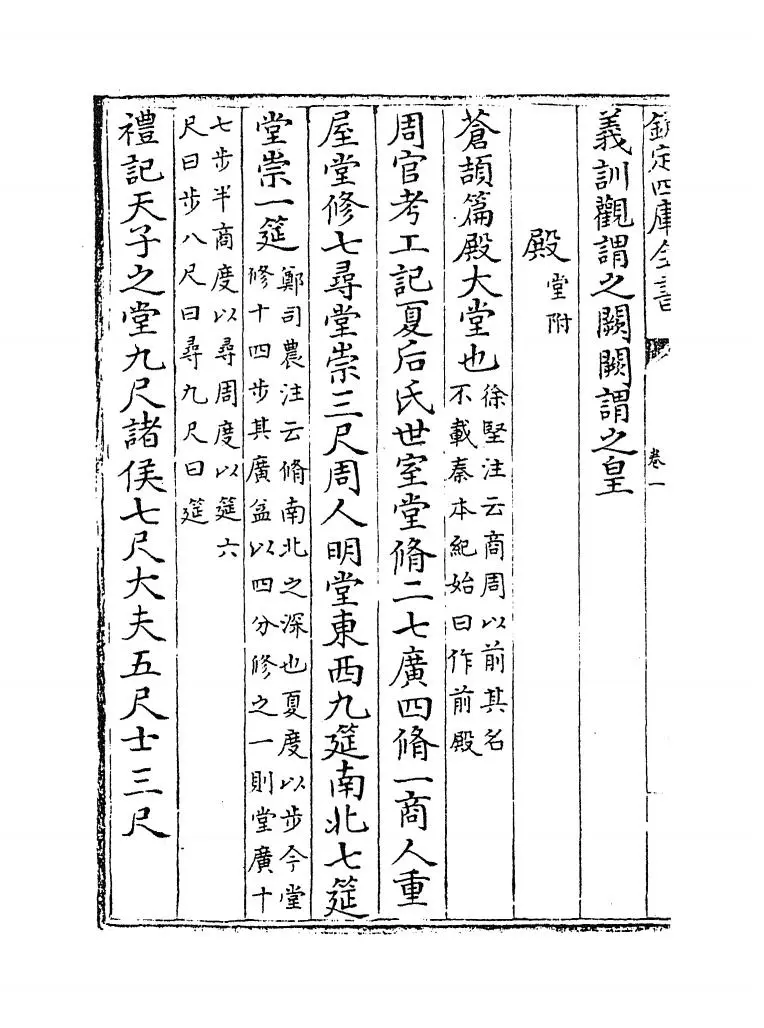 欽定四庫全書
卷一
義訓觀謂之闕闕謂之皇
殿堂附
蒼頡篇殿大堂也徐堅注云商周以前其名
不載秦本紀始曰作前殿
周官考工記夏后氏世室堂脩二七廣四脩一商人重
屋堂修七尋堂崇三尺周人明堂東西九筵南北七筵
堂崇一筵鄭司農注云脩南北之深也夏度以步今堂
修十四步其廣益以四分修之一則堂廣十
七步半商度以尋周度以筵六
尺曰步八尺曰尋九尺曰筵
禮記天子之堂九尺諸侯七尺大夫五尺士三尺